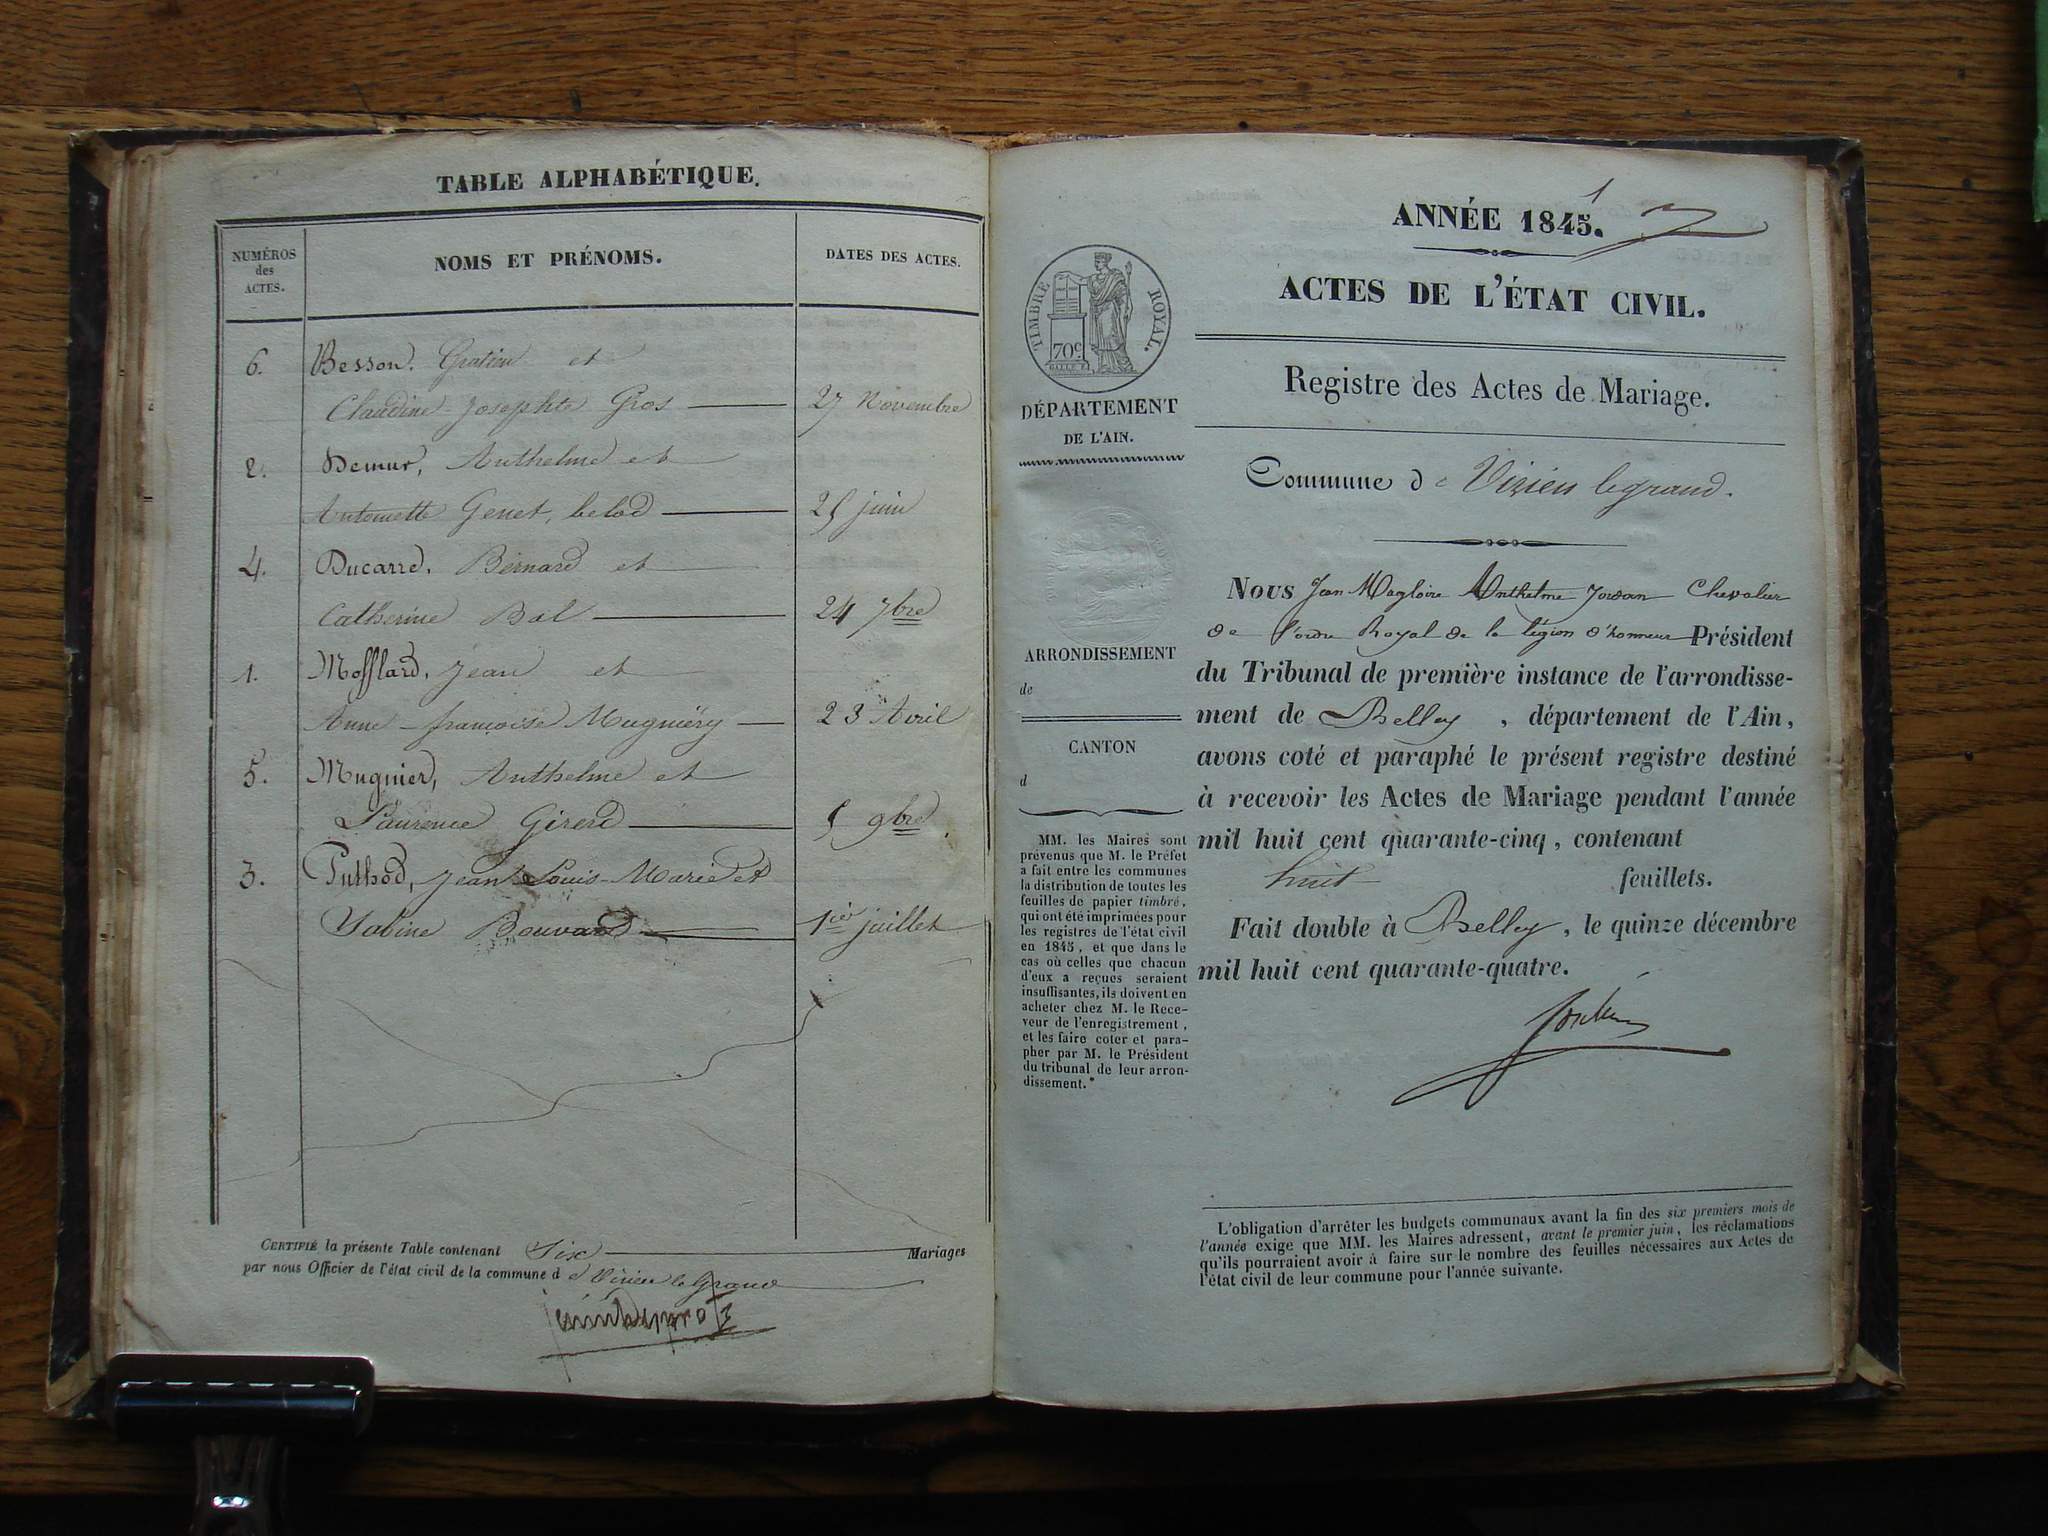 TABLE ALPHABÉTIQUE.
NUMÉROS
des
ACTES.
NOMS ET PRÉNOMS.
DATES DES ACTES.
6. Besson, Gratien et
Claudine-Josephte Gros 27 Novembre
2. Demur, Anthelme et
Antoinette Genet, belod 25 juin
4. Ducarre, Bernard et
Catherine Bal 24 7bre
1. Mofflard, Jean et
Anne-françoise Mugniéry 23 Avril
5. Mugnier, Anthelme et
Laurence Girerd 5 9bre
3. Puthod, Jean-Louis-Marie et
Sabine Bouvard 1ier juillet
CERTIFIÉ la présente Table contenant Six Mariages
par nous Officier de l'état civil de la commune d e Virieu le Grand
1
ANNÉE 1845.
ACTES DE L'ÉTAT CIVIL.
Registre des Actes de Mariage.
TIMBRE ROYAL.
70c
DÉPARTEMENT
DE L'AIN.
ARRONDISSEMENT
de
CANTON
d
MM. les Maires sont
prévenus que M. le Préfet
a fait entre les communes
la distribution de toutes les
feuilles de papier timbré,
qui ont été imprimées pour
les registres de l'état civil
en 1845, et que dans le
cas où celles que chacun
d'eux a reçues seraient
insuffisantes, ils doivent en
acheter chez M. le Rece-
veur de l'enregistrement,
et les faire coter et para-
pher par M. le Président
du tribunal de leur arron-
dissement.
Commune d e Virieu legrand.
NOUS Jean Magloire Anthelme Jordan Chevalier
de l'ordre Royal de la légion d'honneur Président
du Tribunal de première instance de l'arrondisse-
ment de Belley, département de l'Ain,
avons coté et paraphé le présent registre destiné
à recevoir les Actes de Mariage pendant l'année
mil huit cent quarante-cinq, contenant
huit feuillets.
Fait double à Belley, le quinze décembre
mil huit cent quarante-quatre.
Jordan
L'obligation d'arrêter les budgets communaux avant la fin des six premiers mois de
l'année exige que MM. les Maires adressent, avant le premier juin, les réclamations
qu'ils pourraient avoir à faire sur le nombre des feuilles nécessaires aux Actes de
l'état civil de leur commune pour l'année suivante.